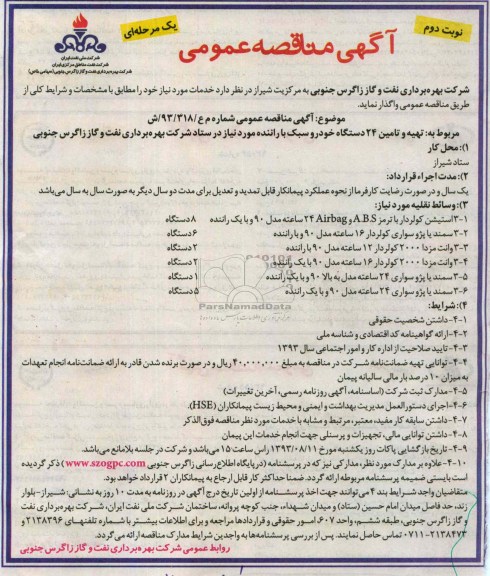 نوبت دوم
یک مرحله‌ای
آگهی مناقصه عمومی
شرکت ملی نفت ایران
شرکت نفت مناطق مرکزی ایران
شرکت بهره‌برداری نفت و گاز زاگرس جنوبی (سهامی خاص)
شرکت بهره‌برداری نفت و گاز زاگرس جنوبی به مرکزیت شیراز در نظر دارد خدمات مورد نیاز خود را مطابق با مشخصات و شرایط کلی از
طریق مناقصه عمومی واگذار نماید.
موضوع: آگهی مناقصه عمومی شماره م ع /۹۳/۳۱۸/ش
مربوط به: تهیه و تامین ۲۴ دستگاه خودرو سبک با راننده مورد نیاز در ستاد شرکت بهره‌برداری نفت و گاز زاگرس جنوبی
۱): محل کار
ستاد شیراز
۲): مدت اجراء قرارداد:
یک سال و در صورت رضایت کارفرما از نحوه عملکرد پیمانکار قابل تمدید و تعدیل برای مدت دو سال دیگر به صورت سال به سال می‌باشد
۳): وسائط نقلیه مورد نیاز:
۳-۱ استیشن کولردار با ترمز A.B.S و Airbag ۲۴ ساعته مدل ۹۰ و با یک راننده ۸ دستگاه
۳-۲ سمند یا پژو سواری کولردار ۱۶ ساعته مدل ۹۰ و با راننده ۶ دستگاه
۳-۳ وانت مزدا ۲۰۰۰ کولردار ۱۲ ساعته مدل ۹۰ با راننده ۲ دستگاه
۳-۴ وانت مزدا ۲۰۰۰ کولردار ۱۶ ساعته مدل ۹۰ با یک راننده ۲ دستگاه
۳-۵ سمند یا پژو سواری ۲۴ ساعته مدل ۹۰ به بالا و با یک راننده ۱ دستگاه
۳-۶ سمند یا پژو سواری ۲۴ ساعته مدل ۹۰ و با یک راننده ۵ دستگاه
ParsNamadData
۴): شرایط:
۴-۱- داشتن شخصیت حقوقی
۴-۲- ارائه گواهینامه کد اقتصادی و شناسه ملی
۴-۳- تایید صلاحیت از اداره کار و امور اجتماعی سال ۱۳۹۳
۴-۴- توانایی تهیه ضمانت‌نامه شرکت در مناقصه به مبلغ ۴۰,۰۰۰,۰۰۰ ریال و در صورت برنده شدن قادر به ارائه ضمانت‌نامه انجام تعهدات
به میزان ۱۰ درصد بار مالی سالیانه پیمان
۴-۵- مدارک ثبت شرکت (اساسنامه، آگهی روزنامه رسمی، آخرین تغییرات)
۴-۶- اجرای دستورالعمل مدیریت بهداشت و ایمنی و محیط زیست پیمانکاران (HSE).
۴-۷- داشتن سابقه کار مفید، معتبر، مرتبط و مشابه با خدمات مورد نظر مناقصه فوق‌الذکر
۴-۸- داشتن توانایی مالی، تجهیزات و پرسنلی جهت انجام خدمات این پیمان
۴-۹- تاریخ بازگشایی پاکات روز یکشنبه مورخ ۱۳۹۳/۰۸/۱۱ راس ساعت ۱۵ می‌باشد و شرکت در جلسه بلامانع می‌باشد.
۴-۱۰- علاوه بر مدارک مورد نظر، مدارکی نیز که در پرسشنامه (درپایگاه اطلاع‌رسانی زاگرس جنوبی www.szogpc.com) ذکر گردیده
است بایستی ضمیمه پرسشنامه مربوطه ارائه گردد. ضمنا حداکثر کار قابل ارجاع به پیمانکاران ۲ قرارداد خواهد بود.
متقاضیان واجد شرایط بند ۴ می‌توانند جهت اخذ پرسشنامه از اولین تاریخ درج آگهی در روزنامه به مدت ۱۰ روز به نشانی: شیراز- بلوار
زند، حد فاصل میدان امام حسین (ستاد) و میدان شهداء، جنب کوچه پروانه، ساختمان شرکت ملی نفت ایران، شرکت بهره‌برداری نفت
و گاز زاگرس جنوبی، طبقه ششم، واحد ۶۰۷، امور حقوقی و قراردادها مراجعه و برای اطلاعات بیشتر با شماره تلفنهای ۲۱۳۸۳۹۶ و
۲۱۳۸۴۷۳-۰۷۱۱ تماس حاصل نمایند. پس از بررسی پرسشنامه‌ها به واجدین شرایط مدارک مناقصه ارائه می‌گردد.
روابط عمومی شرکت بهره‌برداری نفت و گاز زاگرس جنوبی